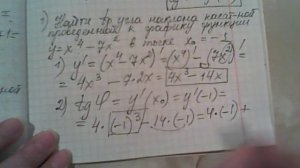 1) Найти tg угла наклона касат-ной
проведенной к графику функции
y=x⁴-7x² в точке x₀=-1
1) y'=(x⁴-7x²)'=(x⁴)'-(7x²)'=
=4x³-7·2x=4x³-14x
2) tgφ=y'(x₀)=y'(-1)=
=4·(-1)³-14·(-1)=4·(-1)+